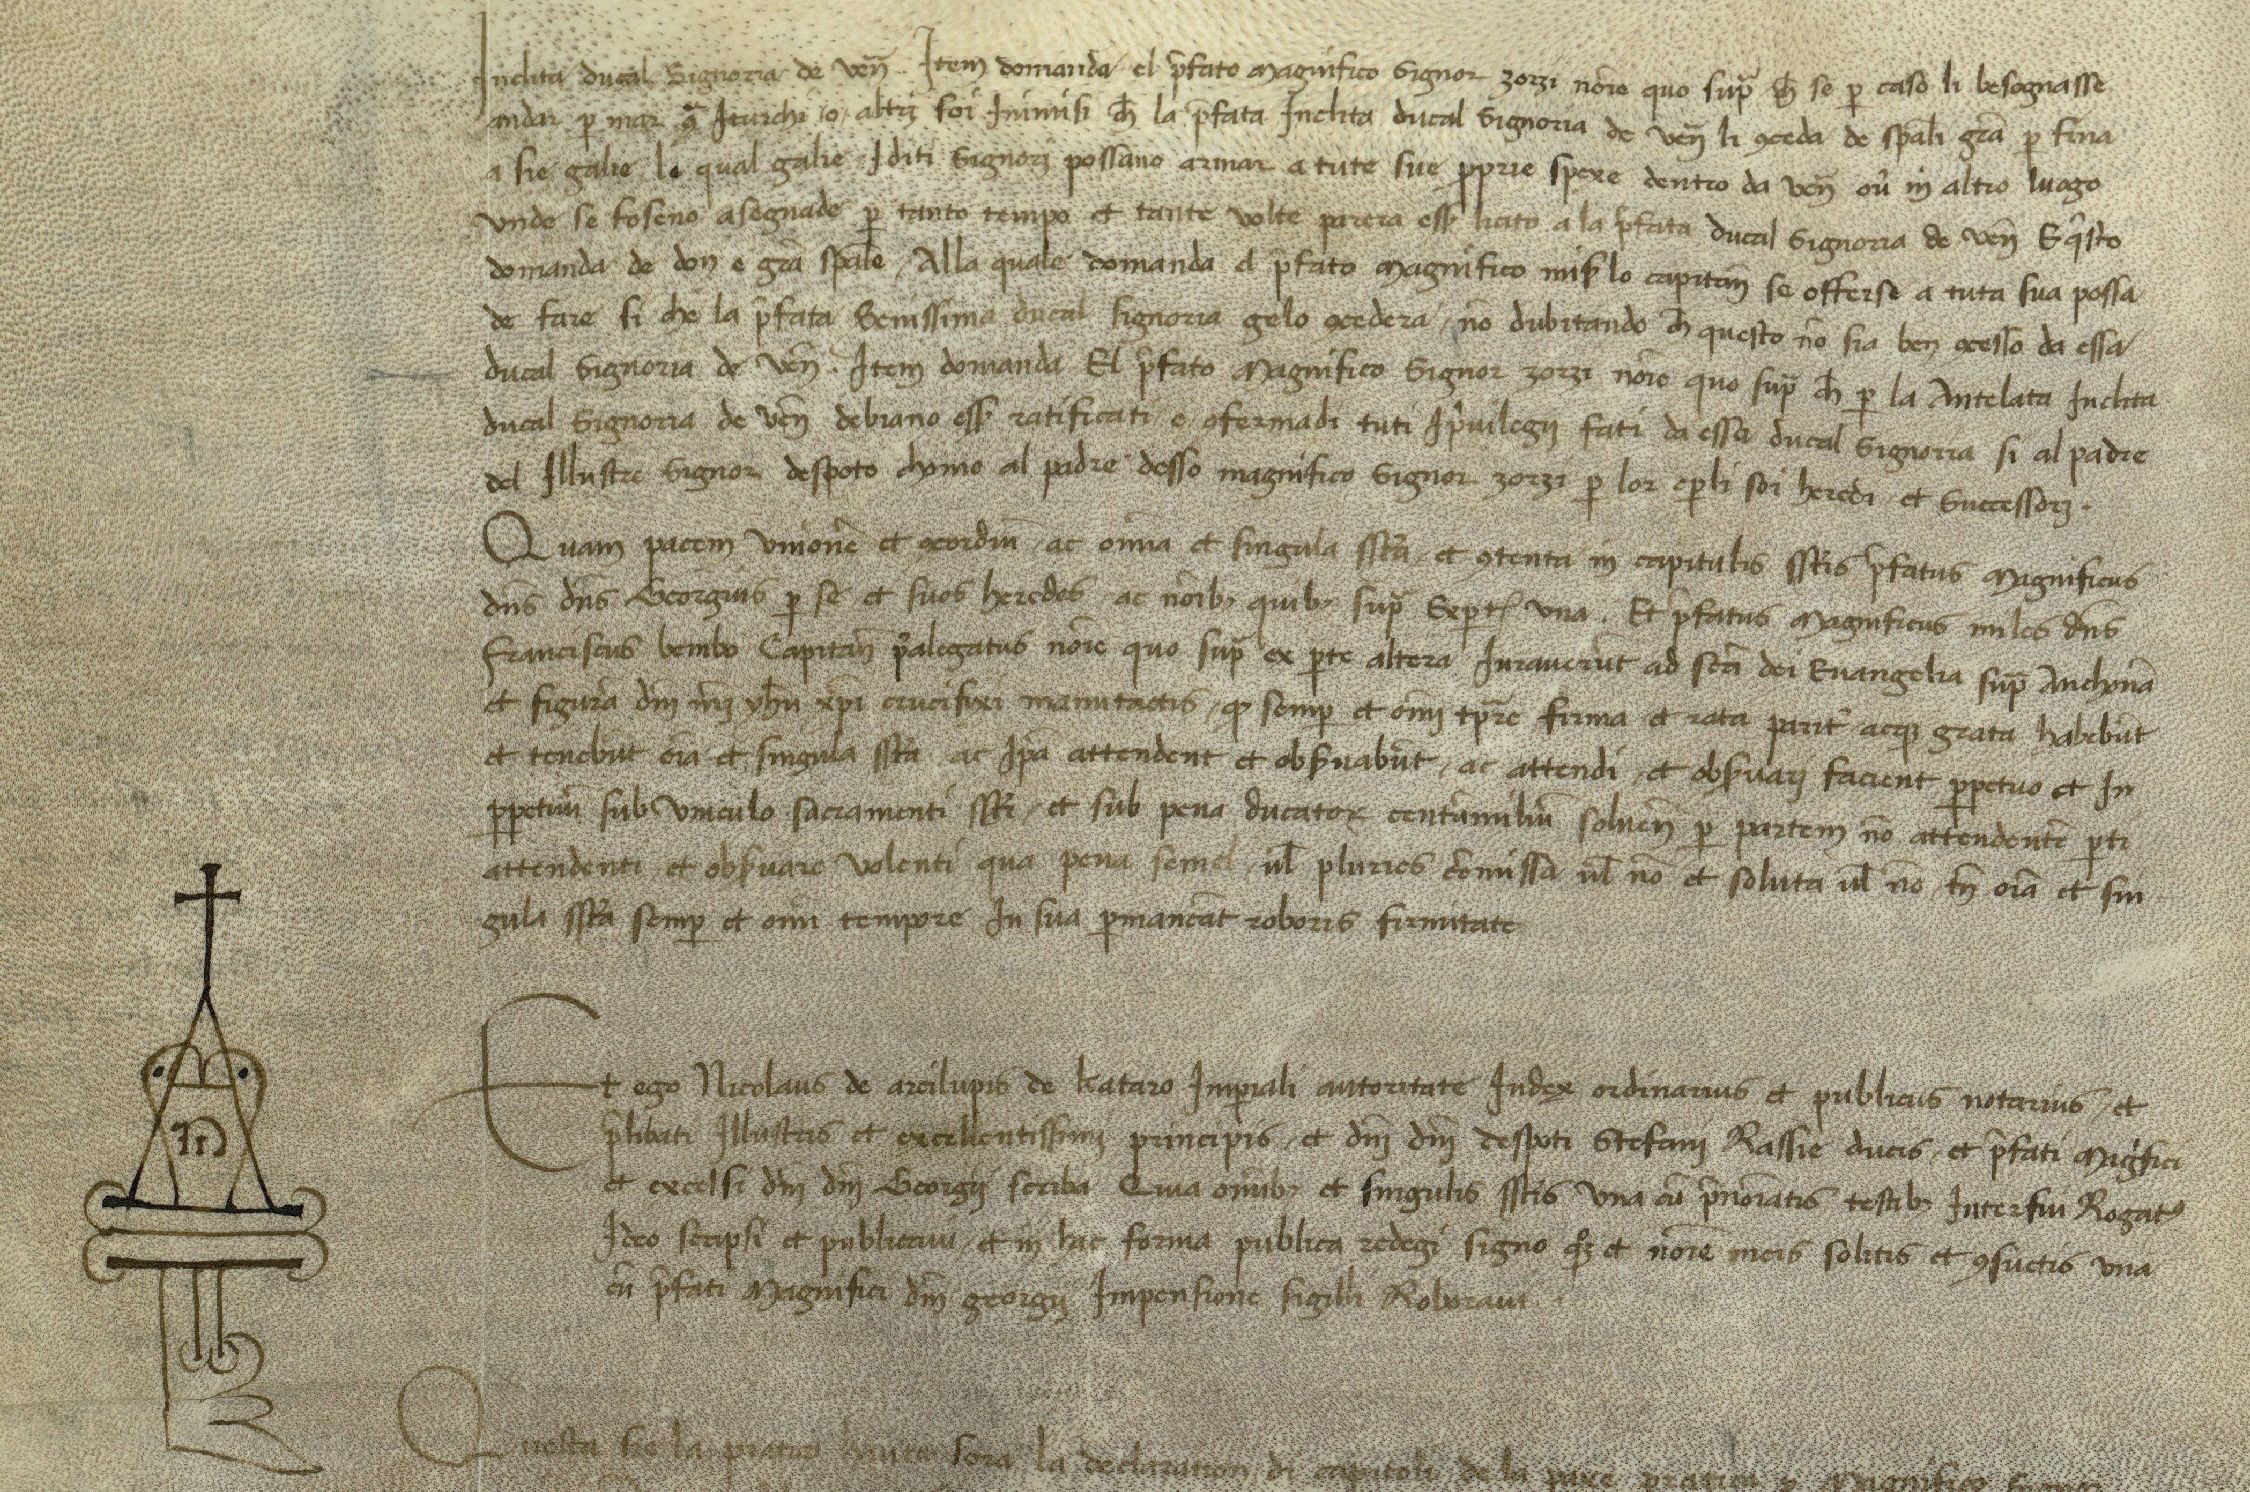 Inclita ducal Signoria de veñ. Item domanda el p̃fato Magnifico Signor zorzi nõie quo sup̃ ch̃ se ꝑ caso li besognasse
andar ꝑ mar ꝯ̃ Iturchi o altrij soi Inimisi ch̃ la p̃fata Inclita ducal Signoria de veñ li ꝯceda de sp̃ali grã ꝑ fina
a sie galie le qual galie Iditi Signorj possano armar a tute sue ꝓprie spexe dentro da veñ oũ in altro luogo
vnde se foseno asegnade ꝑ tanto tempo et tante volte parera esẜ licito a la p̃fata ducal Signoria de veñ E q̃sto
domanda de don e grã sp̃ale, Alla quale domanda el p̃fato Magnifico miẜ lo capitañ se offerse a tuta sua possa
de fare si che la p̃fata Serñissima ducal signoria gelo ꝯcedera, nõ dubitando ch̃ questo nõ sia ben ꝯcesso da essa
ducal Signoria de Veñ. Item domanda El p̃fato Magnifico Signor zorzi nõie quo sup̃ ch̃ ꝑ la Antelata Inclita
ducal Signoria de veñ debiano esẜ ratificati e ꝯfermadi tuti Ip̃uilegij fati da essa ducal Signoria si al padre
del Illustre Signor despoto chomo al padre desso magnifico Signor zorzi ꝑ lor eꝑli soi heredi et Successorj.
Quam pacem vnionẽ et ꝯcordiũ ac om̃ia et singula sſtã et ꝯtenta in capitulis sſtis p̃fatus Magnificus
dñs dñs Georgius ꝑ se et suos heredes ac nõibꝫ quibꝫ sup̃ Exꝑte vna. Et p̃fatus Magnificus miles dñs
Franciscus bembo Capitañ p̃alegatus nõie quo sup̃ ex ꝑte altera Iurauerũt ad sctã dei Euangelia sup̃ Anchonã
et figurã dñi nr̃i yhũ xp̃i crucifixi manutactis, ꝙ semꝑ et om̃i tp̃re firma et rata parit̃ acꝗ grata habebũt
et tenebũt oĩa et singula sſtã ac Ip̃a attendent et obẜuabũt, ac attendi et obẜuarj facient ꝑpetuo et In
ꝑpetuũ sub vinculo sacramenti sſti, et sub pena ducatoꝝ centũmiliũ soluẽn ꝑ partem nõ attendentẽ ꝑti
attendenti et obẜuare volenti qua pena semel uł pluries cõmissa uł nõ et soluta uł nõ, tñ oĩa et sin
gula sſtã semꝑ et om̃i tempore In sua ꝑmaneãt roboris firmitate
Et ego Nicolaus de arcilupis de kataro Imꝑiali autoritate Iudex ordinarius et publicus notarius, et
p̃libati Illustris et excellentissimj principis, et dñi dñi despoti Stefanj Rassie ducis, et p̃fati Mag̃fici
et excelsi dñi dñi Georgij scriba Quia om̃ibꝫ et singulis sſtis vna cũ p̃nõiatis testibꝫ Interfui Rogatꝰ
Ideo scripsi et publicaui, et in hac forma publica redegi signo ꝗꝫ et nõie meis solitis et ꝯsuetis vna
cũ p̃fati Magnifici dñi georgij Impensione sigilli Roboraui.
Questa sie la hauta sora la declaration di capitoli de la paxe Magnifico Signor